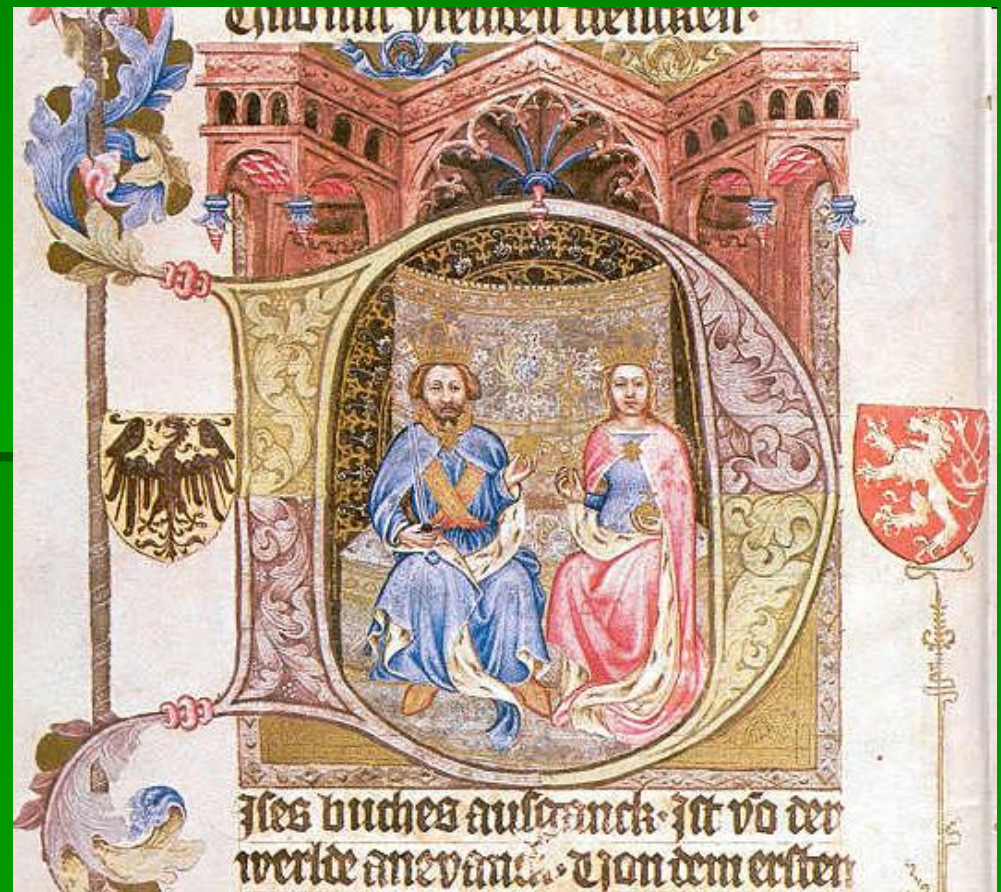 Und mit
DIses buches aufganck· Ist vō der
werlde anevanck· Von dem ersten